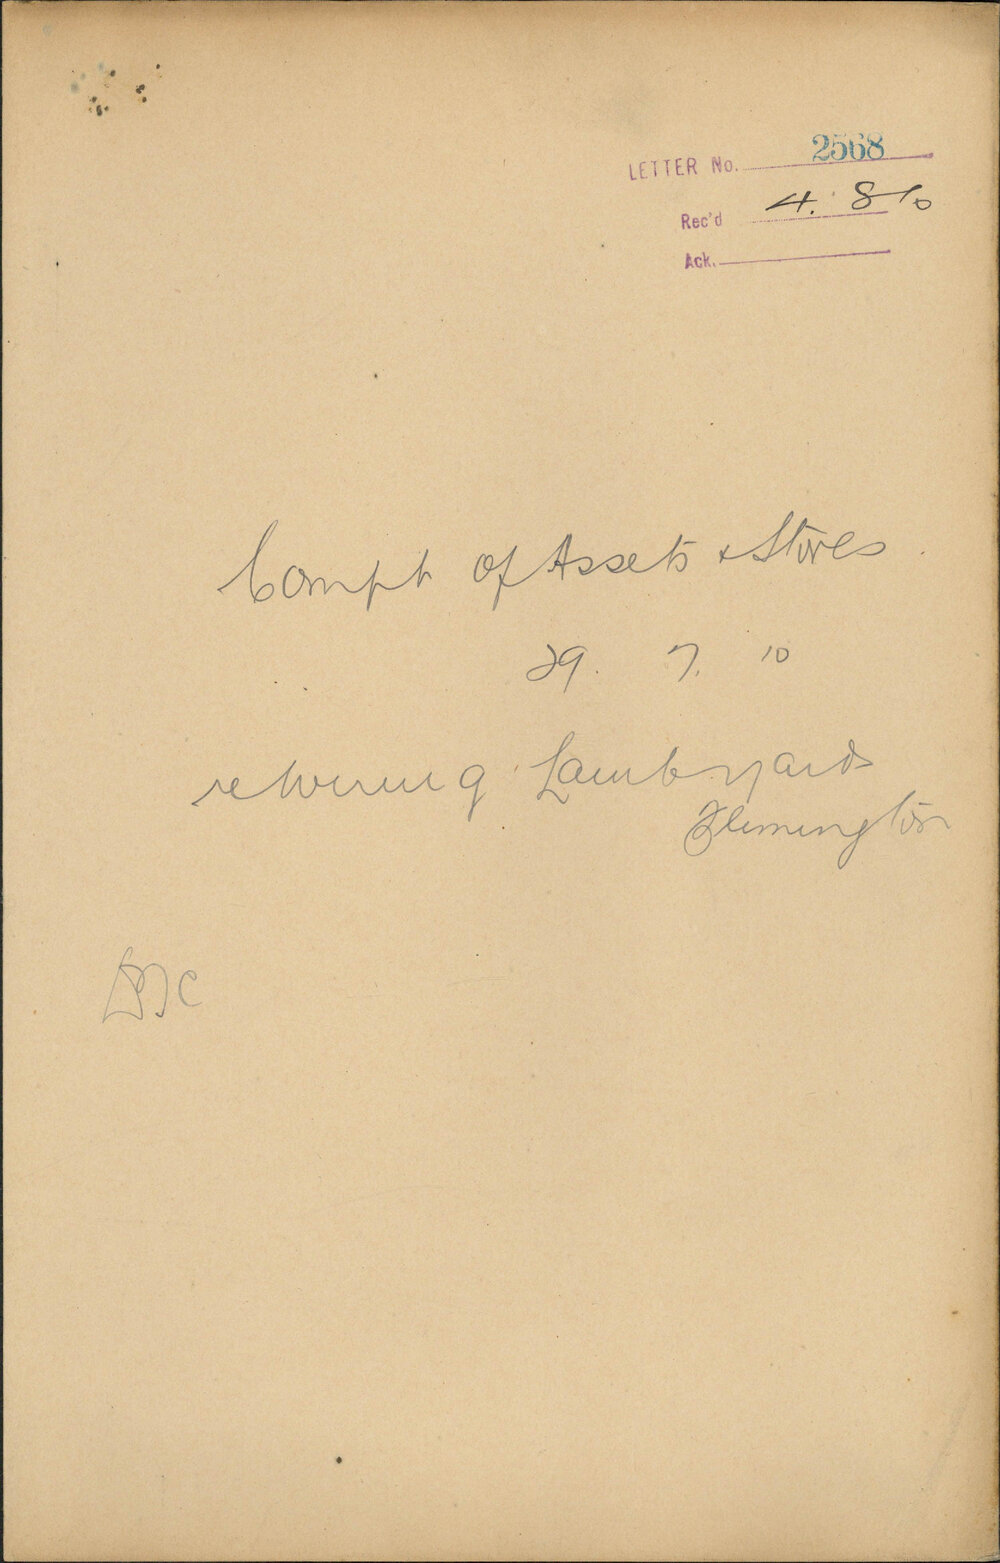 LETTER No. 2568
Rec'd 4. 8/10
Ack.
Compt of Assets & Stores
29. 7. 10
re wiring Lambyards
Flemington